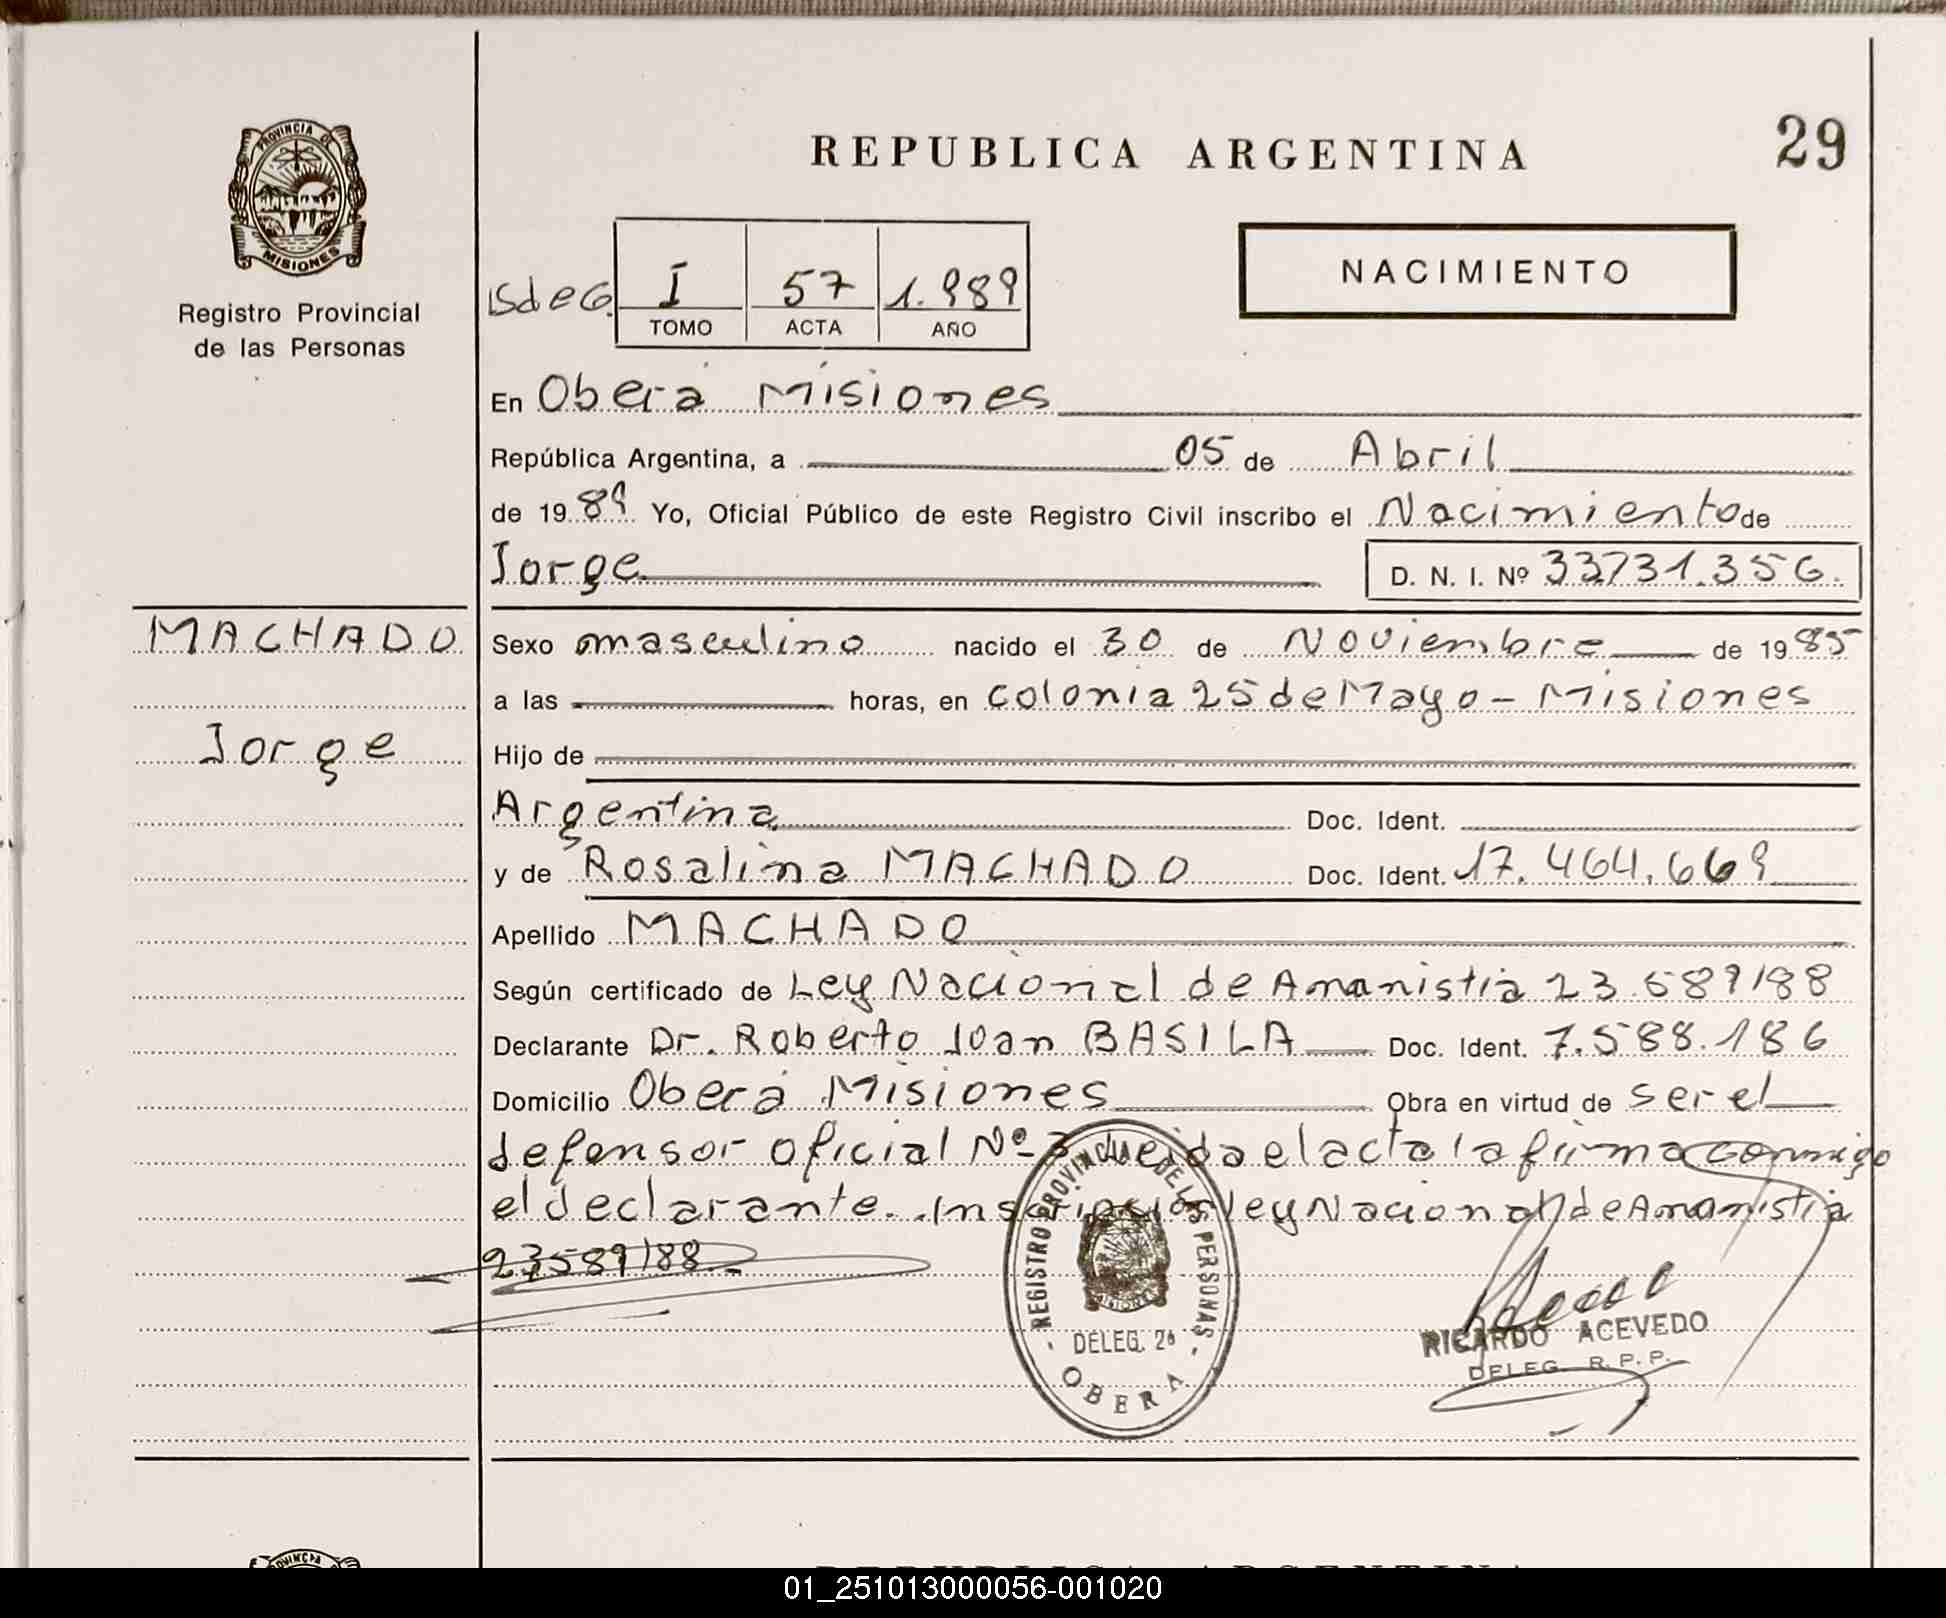 PROVINCIA DE
MISIONES
Registro Provincial
de las Personas
REPUBLICA ARGENTINA
29
NACIMIENTO
I 57 1.989
TOMO ACTA AÑO
En Obera Misiones
República Argentina, a 05 de Abril
de 1989 Yo, Oficial Público de este Registro Civil inscribo el Nacimiento de
Jorge D. N. I. Nº 33731.356.
MACHADO
Jorge
Sexo masculino nacido el 30 de Noviembre de 1985
a las horas, en Colonia 25 de Mayo - Misiones
Hijo de
Argentina Doc. Ident.
y de Rosalina MACHADO Doc. Ident. 17.464.669
Apellido MACHADO
Según certificado de Ley Nacional de Amanistia 23.589/88
Declarante Dr. Roberto Joan BASILA Doc. Ident. 7.588.186
Domicilio Obera Misiones Obra en virtud de ser el
defensor oficial Nº 3 Leida el acta la firma conmigo
el declarante. Inscripción ley Nacional de Amanistia
23589/88.-
REGISTRO PROVINCIAL DE LAS PERSONAS
MISIONES
DELEG. 2ª
OBERA
RICARDO ACEVEDO
DELEG. R.P.P.
01_251013000056-001020